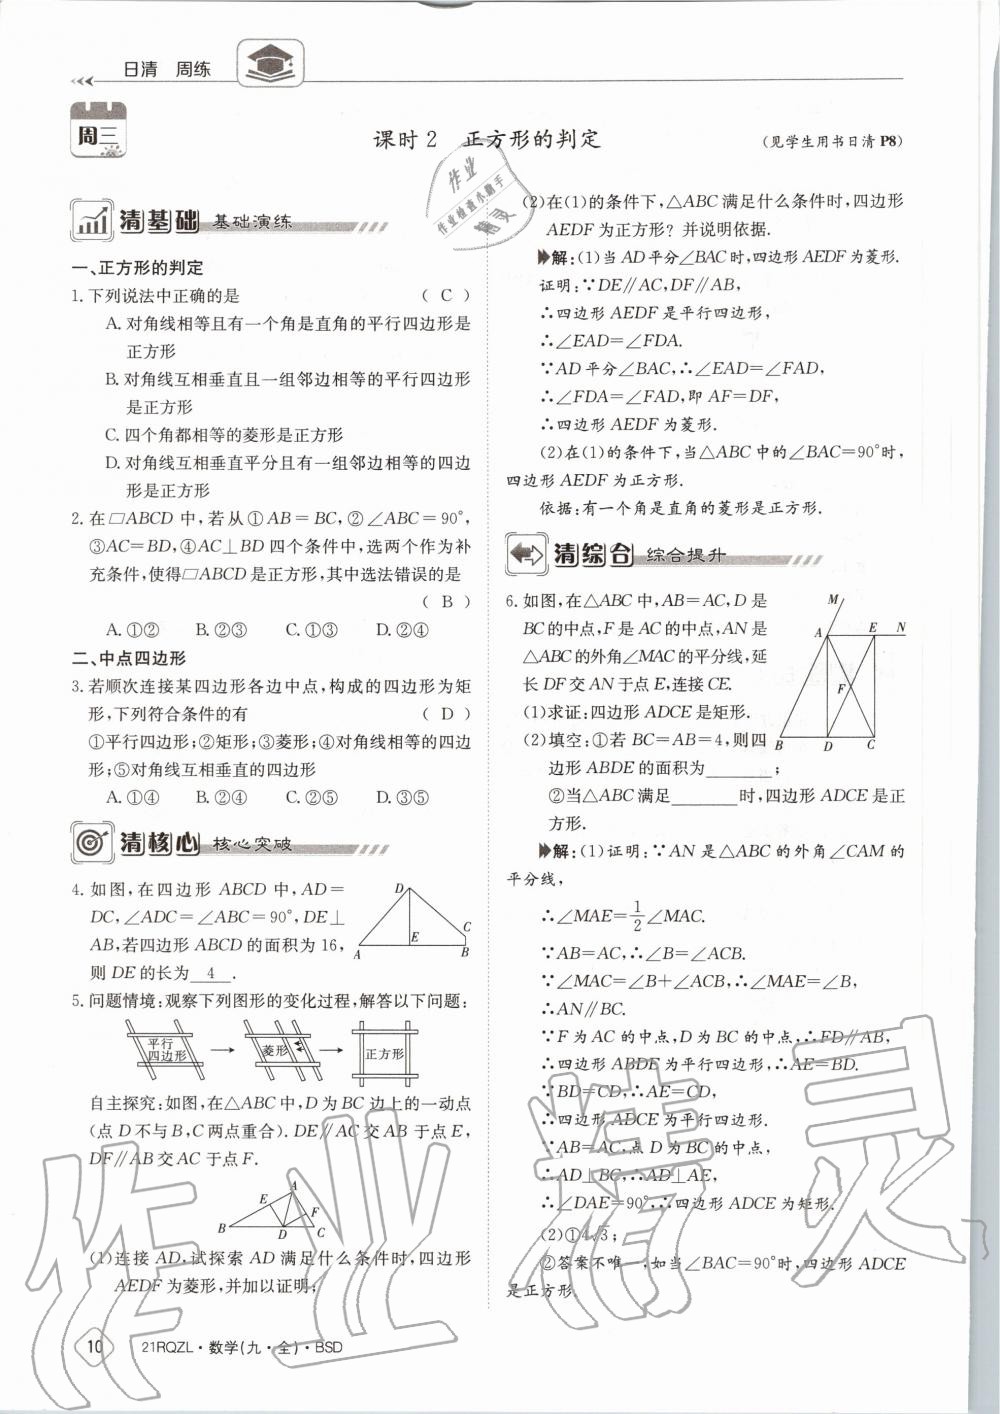 日清 周练
周三
课时2 正方形的判定
(见学生用书日清P8)
清基础 基础演练
一、正方形的判定
1.下列说法中正确的是 ( C )
A.对角线相等且有一个角是直角的平行四边形是
正方形
B.对角线互相垂直且一组邻边相等的平行四边形
是正方形
C.四个角都相等的菱形是正方形
D.对角线互相垂直平分且有一组邻边相等的四边
形是正方形
2.在□ABCD中,若从①AB=BC,②∠ABC=90°,
③AC=BD,④AC⊥BD四个条件中,选两个作为补
充条件,使得□ABCD是正方形,其中选法错误的是
( B )
A.①② B.②③ C.①③ D.②④
二、中点四边形
3.若顺次连接某四边形各边中点,构成的四边形为矩
形,下列符合条件的有 ( D )
①平行四边形;②矩形;③菱形;④对角线相等的四边
形;⑤对角线互相垂直的四边形
A.①④ B.②④ C.②⑤ D.③⑤
清核心 核心突破
4.如图,在四边形ABCD中,AD=
DC,∠ADC=∠ABC=90°,DE⊥
AB,若四边形ABCD的面积为16,
则DE的长为 4 .
D
C
A
E
B
5.问题情境:观察下列图形的变化过程,解答以下问题:
平行
四边形
菱形
正方形
自主探究:如图,在△ABC中,D为BC边上的一动点
(点D不与B,C两点重合).DE∥AC交AB于点E,
DF∥AB交AC于点F.
A
E
F
B
D
C
(1)连接AD,试探索AD满足什么条件时,四边形
AEDF为菱形,并加以证明;
(2)在(1)的条件下,△ABC满足什么条件时,四边形
AEDF为正方形?并说明依据.
解:(1)当AD平分∠BAC时,四边形AEDF为菱形.
证明:∵DE∥AC,DF∥AB,
∴四边形AEDF是平行四边形,
∴∠EAD=∠FDA.
∵AD平分∠BAC,∴∠EAD=∠FAD,
∴∠FDA=∠FAD,即AF=DF,
∴四边形AEDF为菱形.
(2)在(1)的条件下,当△ABC中的∠BAC=90°时,
四边形AEDF为正方形.
依据:有一个角是直角的菱形是正方形.
清综合 综合提升
6.如图,在△ABC中,AB=AC,D是
BC的中点,F是AC的中点,AN是
△ABC的外角∠MAC的平分线,延
长DF交AN于点E,连接CE.
(1)求证:四边形ADCE是矩形.
(2)填空:①若BC=AB=4,则四
边形ABDE的面积为________;
②当△ABC满足________时,四边形ADCE是正
方形.
M
A
E
N
F
B
D
C
解:(1)证明:∵AN是△ABC的外角∠CAM的
平分线,
∴∠MAE=1/2∠MAC.
∵AB=AC,∴∠B=∠ACB.
∵∠MAC=∠B+∠ACB,∴∠MAE=∠B,
∴AN∥BC.
∵F为AC的中点,D为BC的中点,∴FD∥AB,
∴四边形ABDE为平行四边形,∴AE=BD.
∵BD=CD,∴AE=CD,
∴四边形ADCE为平行四边形.
∵AB=AC,点D为BC的中点,
∴AD⊥BC,∴AD⊥AE,
∴∠DAE=90°,∴四边形ADCE为矩形.
(2)①4√3;
②答案不唯一,如当∠BAC=90°时,四边形ADCE
是正方形.
10
21RQZL·数学(九·全)·BSD
作业
作业检查小助手
精灵
作业精灵